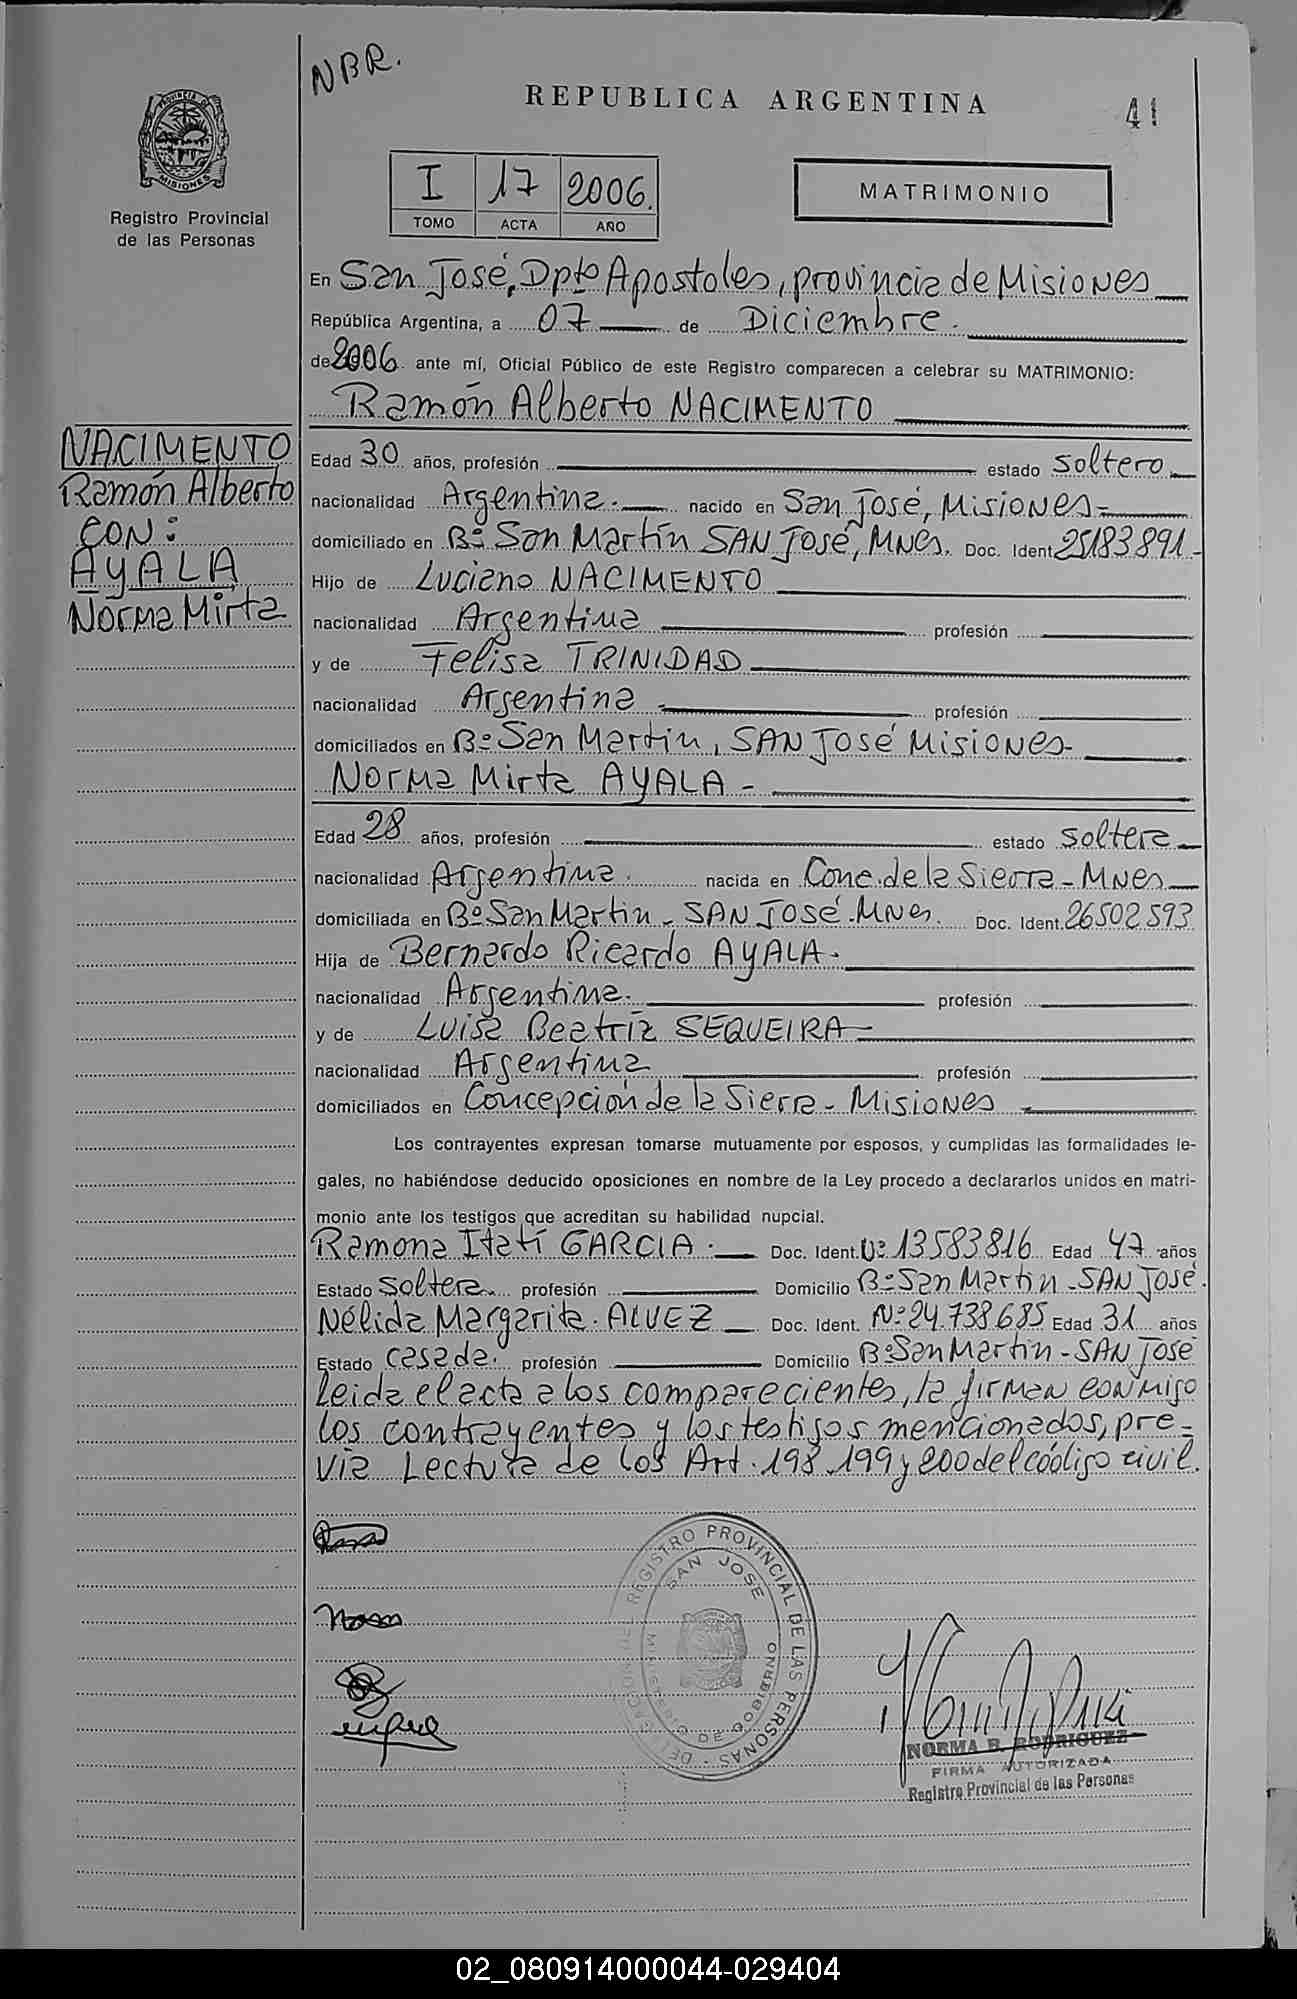 NBR.
REPUBLICA ARGENTINA
41
PROVINCIA DE MISIONES
Registro Provincial
de las Personas
I 17 2006.
TOMO ACTA AÑO
MATRIMONIO
En San José, Dpto Apostoles, provincia de Misiones
República Argentina, a 07 de Diciembre.
de 2006 ante mí, Oficial Público de este Registro comparecen a celebrar su MATRIMONIO:
Ramón Alberto NACIMENTO
NACIMENTO
Ramón Alberto
CON:
AYALA
Norma Mirta
Edad 30 años, profesión estado soltero
nacionalidad Argentina. nacido en San José, Misiones
domiciliado en Bº San Martín SAN José, MNes. Doc. Ident 25183891
Hijo de Luciano NACIMENTO
nacionalidad Argentina profesión
y de Felisa TRINIDAD
nacionalidad Argentina profesión
domiciliados en Bº San Martin, SAN José Misiones
Norma Mirta AYALA
Edad 28 años, profesión estado soltera
nacionalidad Argentina. nacida en Conc. de la Sierra - MNes
domiciliada en Bº San Martin - SAN José - MNes. Doc. Ident. 26502593
Hija de Bernardo Ricardo AYALA.
nacionalidad Argentina. profesión
y de Luisa Beatriz SEQUEIRA
nacionalidad Argentina profesión
domiciliados en Concepción de la Sierra - Misiones
Los contrayentes expresan tomarse mutuamente por esposos, y cumplidas las formalidades le-
gales, no habiéndose deducido oposiciones en nombre de la Ley procedo a declararlos unidos en matri-
monio ante los testigos que acreditan su habilidad nupcial.
Ramona Itatí GARCIA. Doc. Ident. Nº 13583816 Edad 47 años
Estado soltera profesión Domicilio Bº San Martin - SAN José.
Nélida Margarita ALVEZ Doc. Ident. Nº 24.738.685 Edad 31 años
Estado casada. profesión Domicilio Bº San Martin - SAN José
Leida el acta a los comparecientes, la firman conmigo
los contrayentes y los testigos mencionados, pre-
via Lectura de los Art. 198, 199 y 200 del códligo civil.
REGISTRO PROVINCIAL DE LAS PERSONAS
SAN JOSE
NORMA B. RODRIGUEZ
FIRMA AUTORIZADA
Registro Provincial de las Personas
02_080914000044-029404